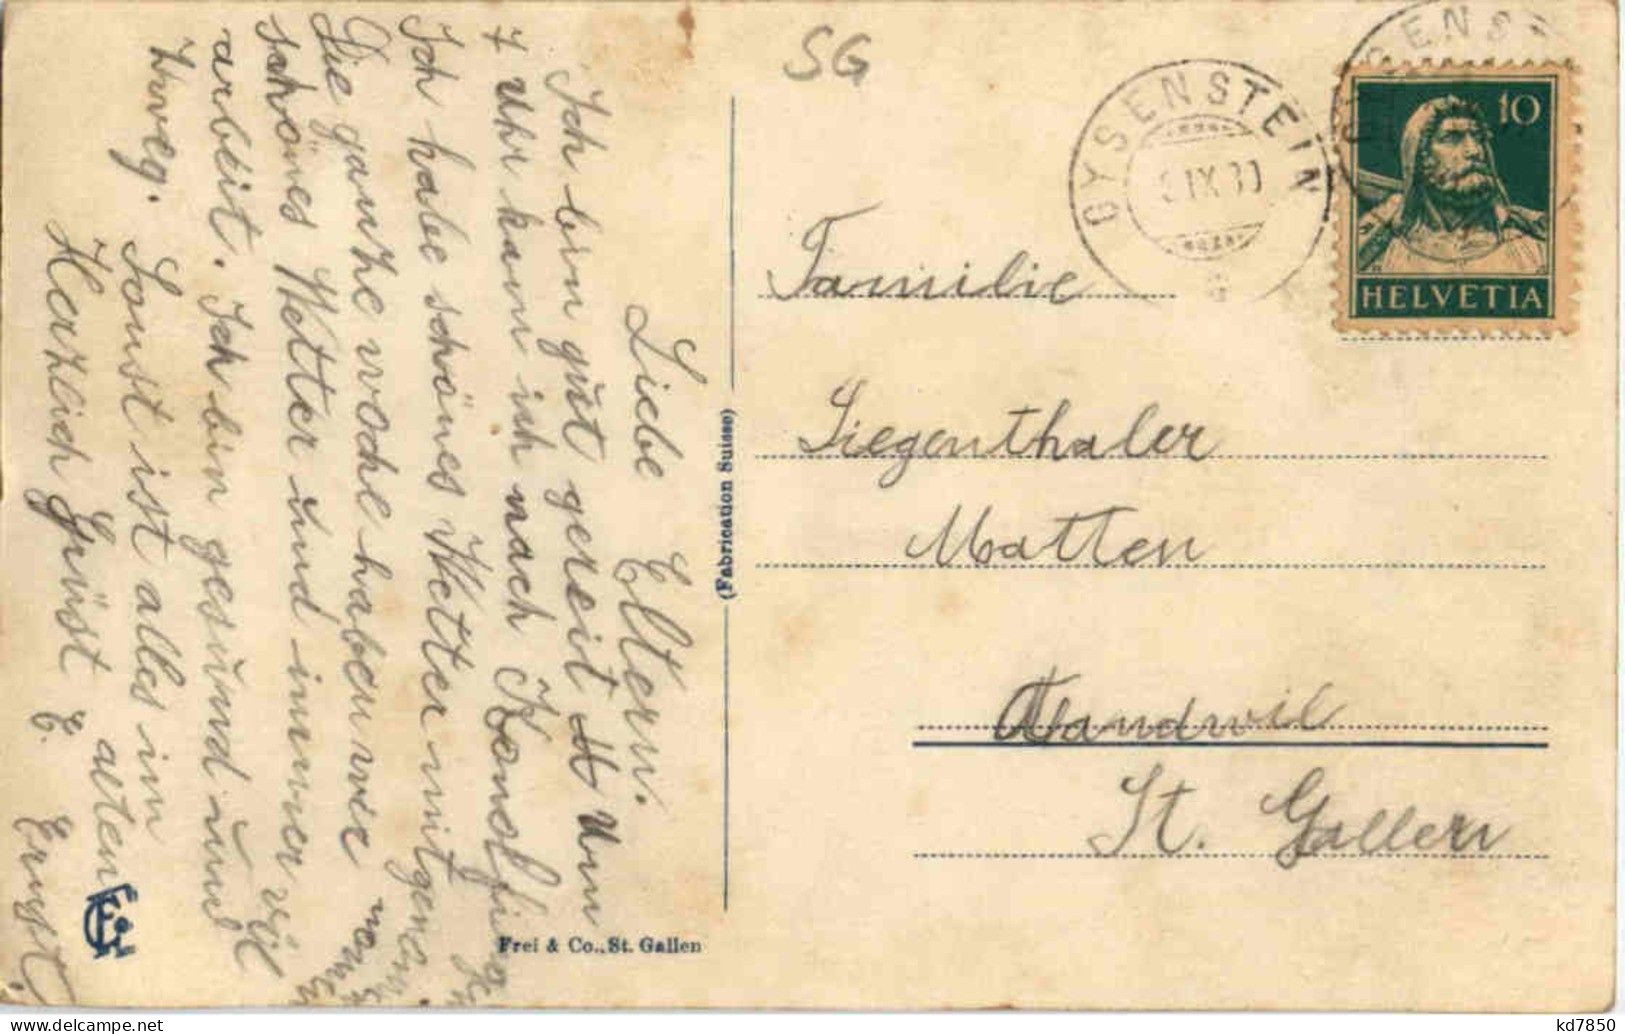 Liebe Eltern.
Ich bin gut gereit Um
7 Uhr kam ich nach Konolfingen
Ich habe schönes Wetter mitgenommen
Die ganze woche haben wir
schönes Wetter und immer vil
arbeit. Ich bin gesund und
Sonst ist alles im alten
Weg.
Herzlich Grüst E. Ernst.
SG
GYSENSTEIN
IX 30
10
HELVETIA
Familie
Siegenthaler
Matten
Andwil
St. Gallen
(Fabrication Suisse)
Frei & Co., St. Gallen
kd7850